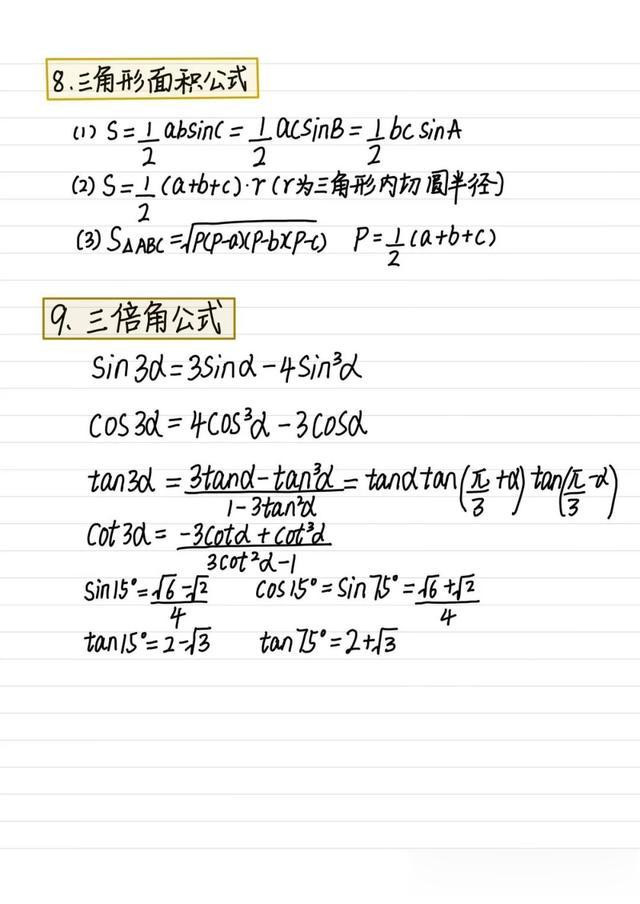 8.三角形面积公式
(1) S=1/2 absinC=1/2 acsinB=1/2 bc sinA
(2) S=1/2 (a+b+c)·r (r为三角形内切圆半径)
(3) S△ABC=√(P(P-a)(P-b)(P-c)) P=1/2 (a+b+c)
9. 三倍角公式
sin3α=3sinα-4sin³α
cos3α=4cos³α-3cosα
tan3α=(3tanα-tan³α)/(1-3tan²α)=tanαtan(π/3+α)tan(π/3-α)
cot3α=(-3cotα+cot³α)/(3cot²α-1)
sin15°=(√6-√2)/4 cos15°=sin75°=(√6+√2)/4
tan15°=2-√3 tan75°=2+√3